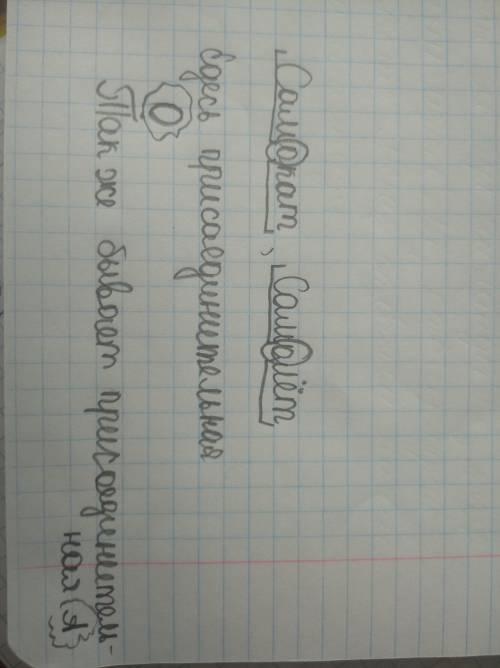 Самокат, Самолёт
Здесь присаединительная
О
Так же бывает присоединитель-
ная (Я)